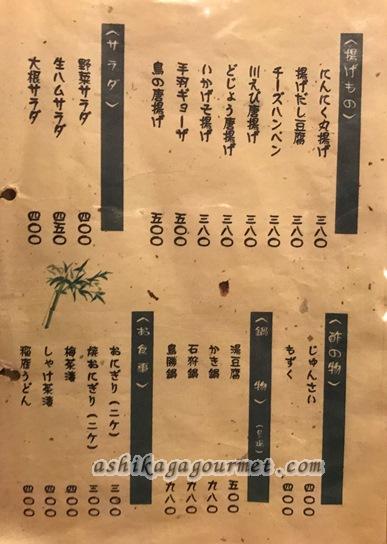 〈揚げもの〉
にんにく丸揚げ 三八〇
揚げだし豆腐 三八〇
チーズハンペン 三八〇
川えび唐揚げ 三八〇
どじょう唐揚げ 三八〇
いかげそ揚げ 三八〇
手羽ギョーザ 五〇〇
鳥の唐揚げ 五〇〇
〈サラダ〉
野菜サラダ 四〇〇
生ハムサラダ 四五〇
大根サラダ 四〇〇
〈酢の物〉
じゅんさい 四〇〇
もずく 四〇〇
〈鍋物〉
湯豆腐 五〇〇
かき鍋 九八〇
石狩鍋 九八〇
鳥鍋 九八〇
〈お食事〉
おにぎり(二ケ) 三〇〇
焼おにぎり(二ケ) 三〇〇
梅茶漬 四〇〇
しゃけ茶漬 四〇〇
稲庭うどん 四〇〇
ashikagagourmet.com